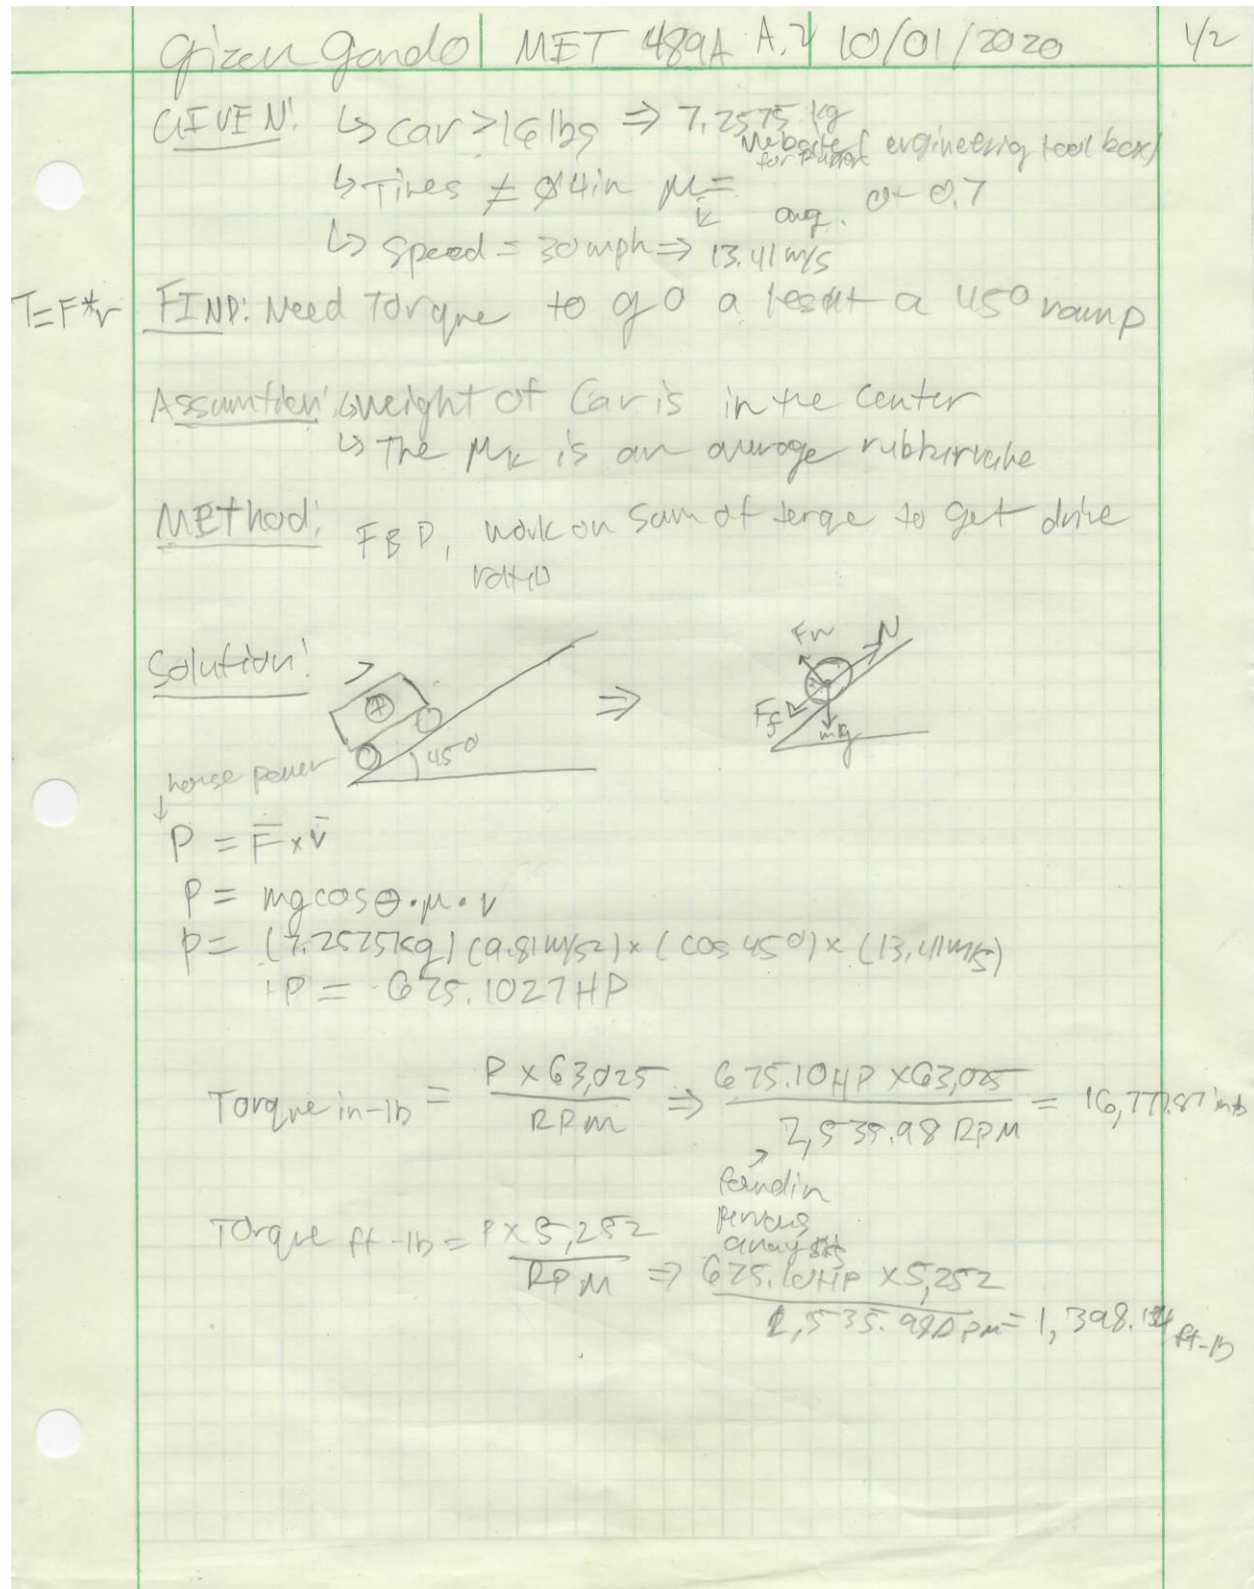 Gizen Gando | MET 489A A.2 | 10/01/2020 1/2
GIVEN: ↳ Car > 16 lbs ⇒ 7.2575 kg
Website (engineering tool box)
for rubber
↳ Tires ≠ Ø4in μ= avg. 0-0.7
k
↳ speed = 30 mph ⇒ 13.41 m/s
T=F*r FIND: Need Torque to go a lesat a 45° ramp
Assumtion: ↳ weight of Car is in the center
↳ The μk is an average rubber value
Method: FBD, work on sum of torqe to get drive
ratio
Solution:
⇒ N
Ff mg
45°
horse power
P = F x v
P = mg cosθ·μ·v
P = (7.2575kg) (9.81 m/s2) x (cos 45°) x (13.41 m/s)
P = 675.1027 HP
Torque in-lb = P x 63,025 / RPM ⇒ 675.10 HP x 63,025 / 2,535.98 RPM = 16,777.87 in-lb
found in
pervous
anaysits
Torque ft-lb = P x 5,252 / RPM ⇒ 675.10 HP x 5,252 / 2,535.98 RPM = 1,398. ft-lb